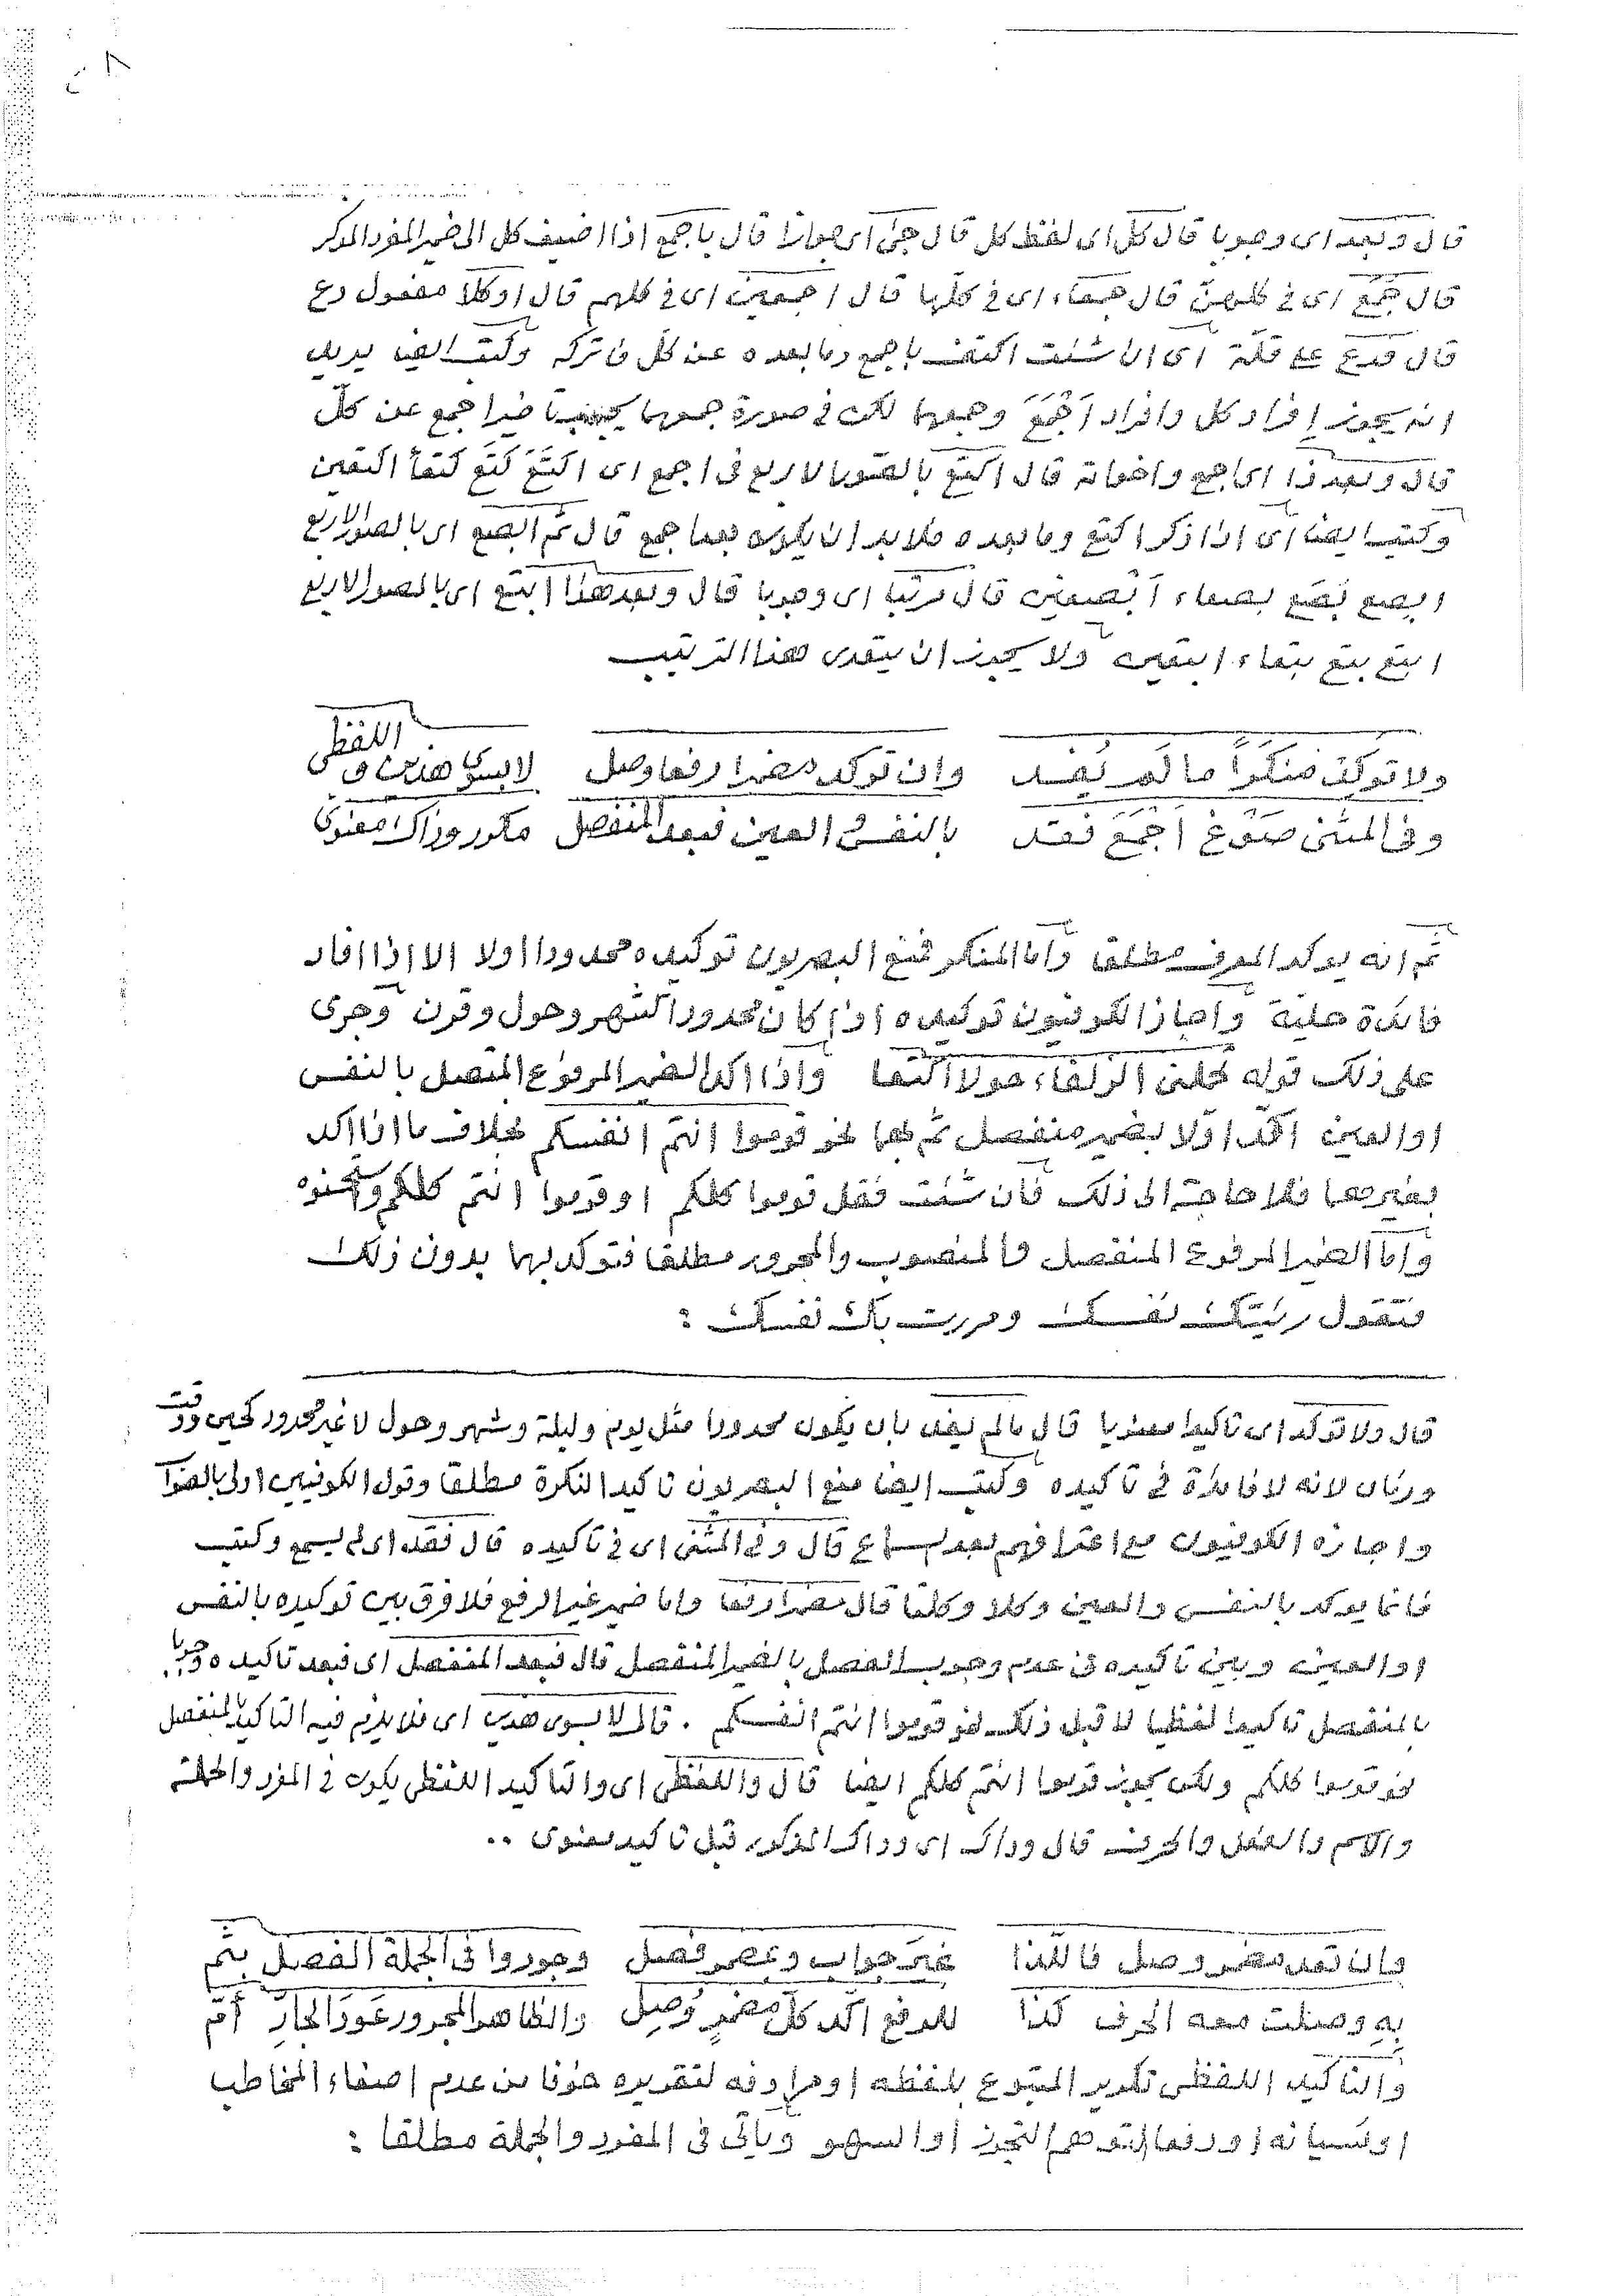 قال وبعد اى وجوبا قال كل اى لفظ كل قال جئ اى جوازا قال باجمع اذا اضيف كل الى ضمير المفرد المذكر
قال جُمَع اى فى كلهنّ قال جمعاء اى فى كلّها قال اجمعين اى فى كلهم قال او كلا مفعول دع
قال فدع على قلّة اى ان شئت اكتف باجمع وما بعده عن كلّ فاتركه وكتب ايضا يريد
انه يجوز إفراد كل وافراد اَجْمَعَ وجمعها لكن فى صورة جمعهما يجب تاخير اجمع عن كلّ
قال وبعد ذا اى اجمع واخواته قال اكتع بالصّور الاربع فى اجمع اى اكتَعَ كُتَع كتعأ اكتعين
وكتب ايضا اى اذا ذكر اكتع وما بعده فلا بد ان يكون بعد اجمع قال ثم ابصع اى بالصور الاربع
ابصع بُصَع بصعاء اَبْصعين قال مرتّبا اى وجوبا قال وبعد هذا ابتع اى بالصور الاربع
ابتع بتع بتعاء ابتعين ولا يجوز ان يتعدى هذا الترتيب
ولا توكدْ منكَرًا ما لَم يُفِد وان توكد مضمرا رفعا وصل لا بسوى هذين واللفظى
وفى المثنى صَوْغ اَجْمَعَ فقد بالنفس والعين فبعد المنفصل مكرر وذاك معنوى
ثم انه يوكد المعرف مطلقا وامّا المنكر فمنع البصريون توكيده محدودا اولا الا اذا افاد
فائدة جليّة واجاز الكوفيون توكيده اذا كان محدودا كشهر وحول وقرن وجرى
على ذلك قوله تحملنى الزلفاء حولا اكتعا واذا اكد الضمير المرفوع المتصل بالنفس
او العين اكّد اوّلا بضمير منفصل ثم بهما نحو قوموا انتم انفسكم بخلاف ما اذا اكد
بغيرهما فلا حاجة الى ذلك فان شئت فقل قوموا كلكم او قوموا انتم كلكم
وامّا الضمير المرفوع المنفصل والمنصوب والمجرور مطلقا فتوكد بهما بدون ذلك
فتقول رئيتك نفسك ومررت بك نفسك :
قال ولا توكد اى تاكيدا معنويا قال ما لم يفد بان يكون محدودا مثل يوم وليلة وشهر وحول لا غير محدود كحين ووقت
وزمان لانه لا فائدة فى تاكيده وكتب ايضا منع البصريون تاكيد النكرة مطلقا وقول الكوفيين اولى بالصواب
واجازه الكوفيون مع اعترافهم بعدم سماع قال وفى المثنى اى فى تاكيده قال فقد اى لم يسمع وكتب
فانما يوكد بالنفس والعين وكلا وكلتا قال مضمرا رفعا واما ضمير غير الرفع فلا فرق بين توكيده بالنفس
او العين وبين تاكيده فى عدم وجوب الفصل بالضمير المنفصل قال فبعد المنفصل اى فبعد تاكيده وجوبا
بالمنفصل تاكيدا لفظيا لا قبل ذلك نحو قوموا انتم انفسكم . قال لا بسوى هذين اى فلا يلزم فيه التاكيد بالمنفصل
نحو قوموا كلكم ولكن يجوز قوموا انتم كلكم ايضا قال واللفظى اى والتاكيد اللفظى يكون فى المفرد والجملة
والاسم والفعل والحرف قال وذاك اى وذاك المذكور قبل تاكيد معنوى ..
وان تعد مضمر وصل فاللّذا غيرَ جواب وبمضمر فصل وجوزوا فى الجملة الفصل بثم
بِهِ وصلت معه الحرف كذا للرفع اكّد كلّ مضمرٍ وُصِل والظاهر المجرور عَودَ الجارِّ أَمّ
والتاكيد اللفظى تكرير المتبوع بلفظه او مرادفه لتقريره خوفا من عدم اصغاء المخاطب
او نسيانه او دفعا لتوهم التجوز او السهو وياتى فى المفرد والجملة مطلقا :